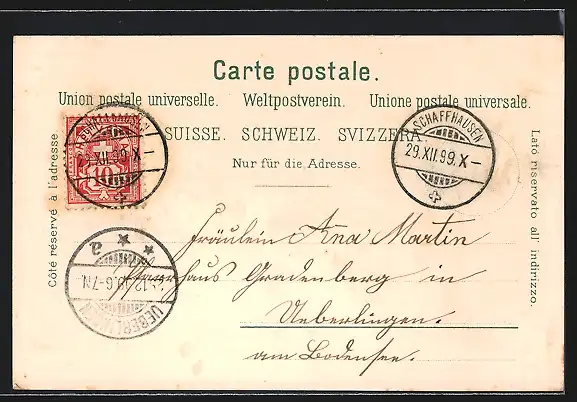 Carte postale.
Union postale universelle. Weltpostverein. Unione postale universale.
SUISSE. SCHWEIZ. SVIZZERA
Nur für die Adresse.
Côté réservé à l'adresse
Lato riservato all' indirizzo.
SCHAFFHAUSEN
29.XII.99.X-
SCHAFFHAUSEN
29.XII.99.X-
10
UEBERLINGEN
Fräulein Ana Martin
Pfarrhaus Gradenberg in
Ueberlingen.
am Bodensee.